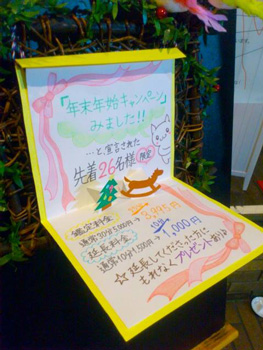 「年末年始キャンペーン」
みました!!
…と、宣言された
先着26名様 限定
鑑定料金
通常30分5,000円→3,895円
延長料金
通常10分1,500円→1,000円
☆延長してくださった方に
もれなくプレゼントあり